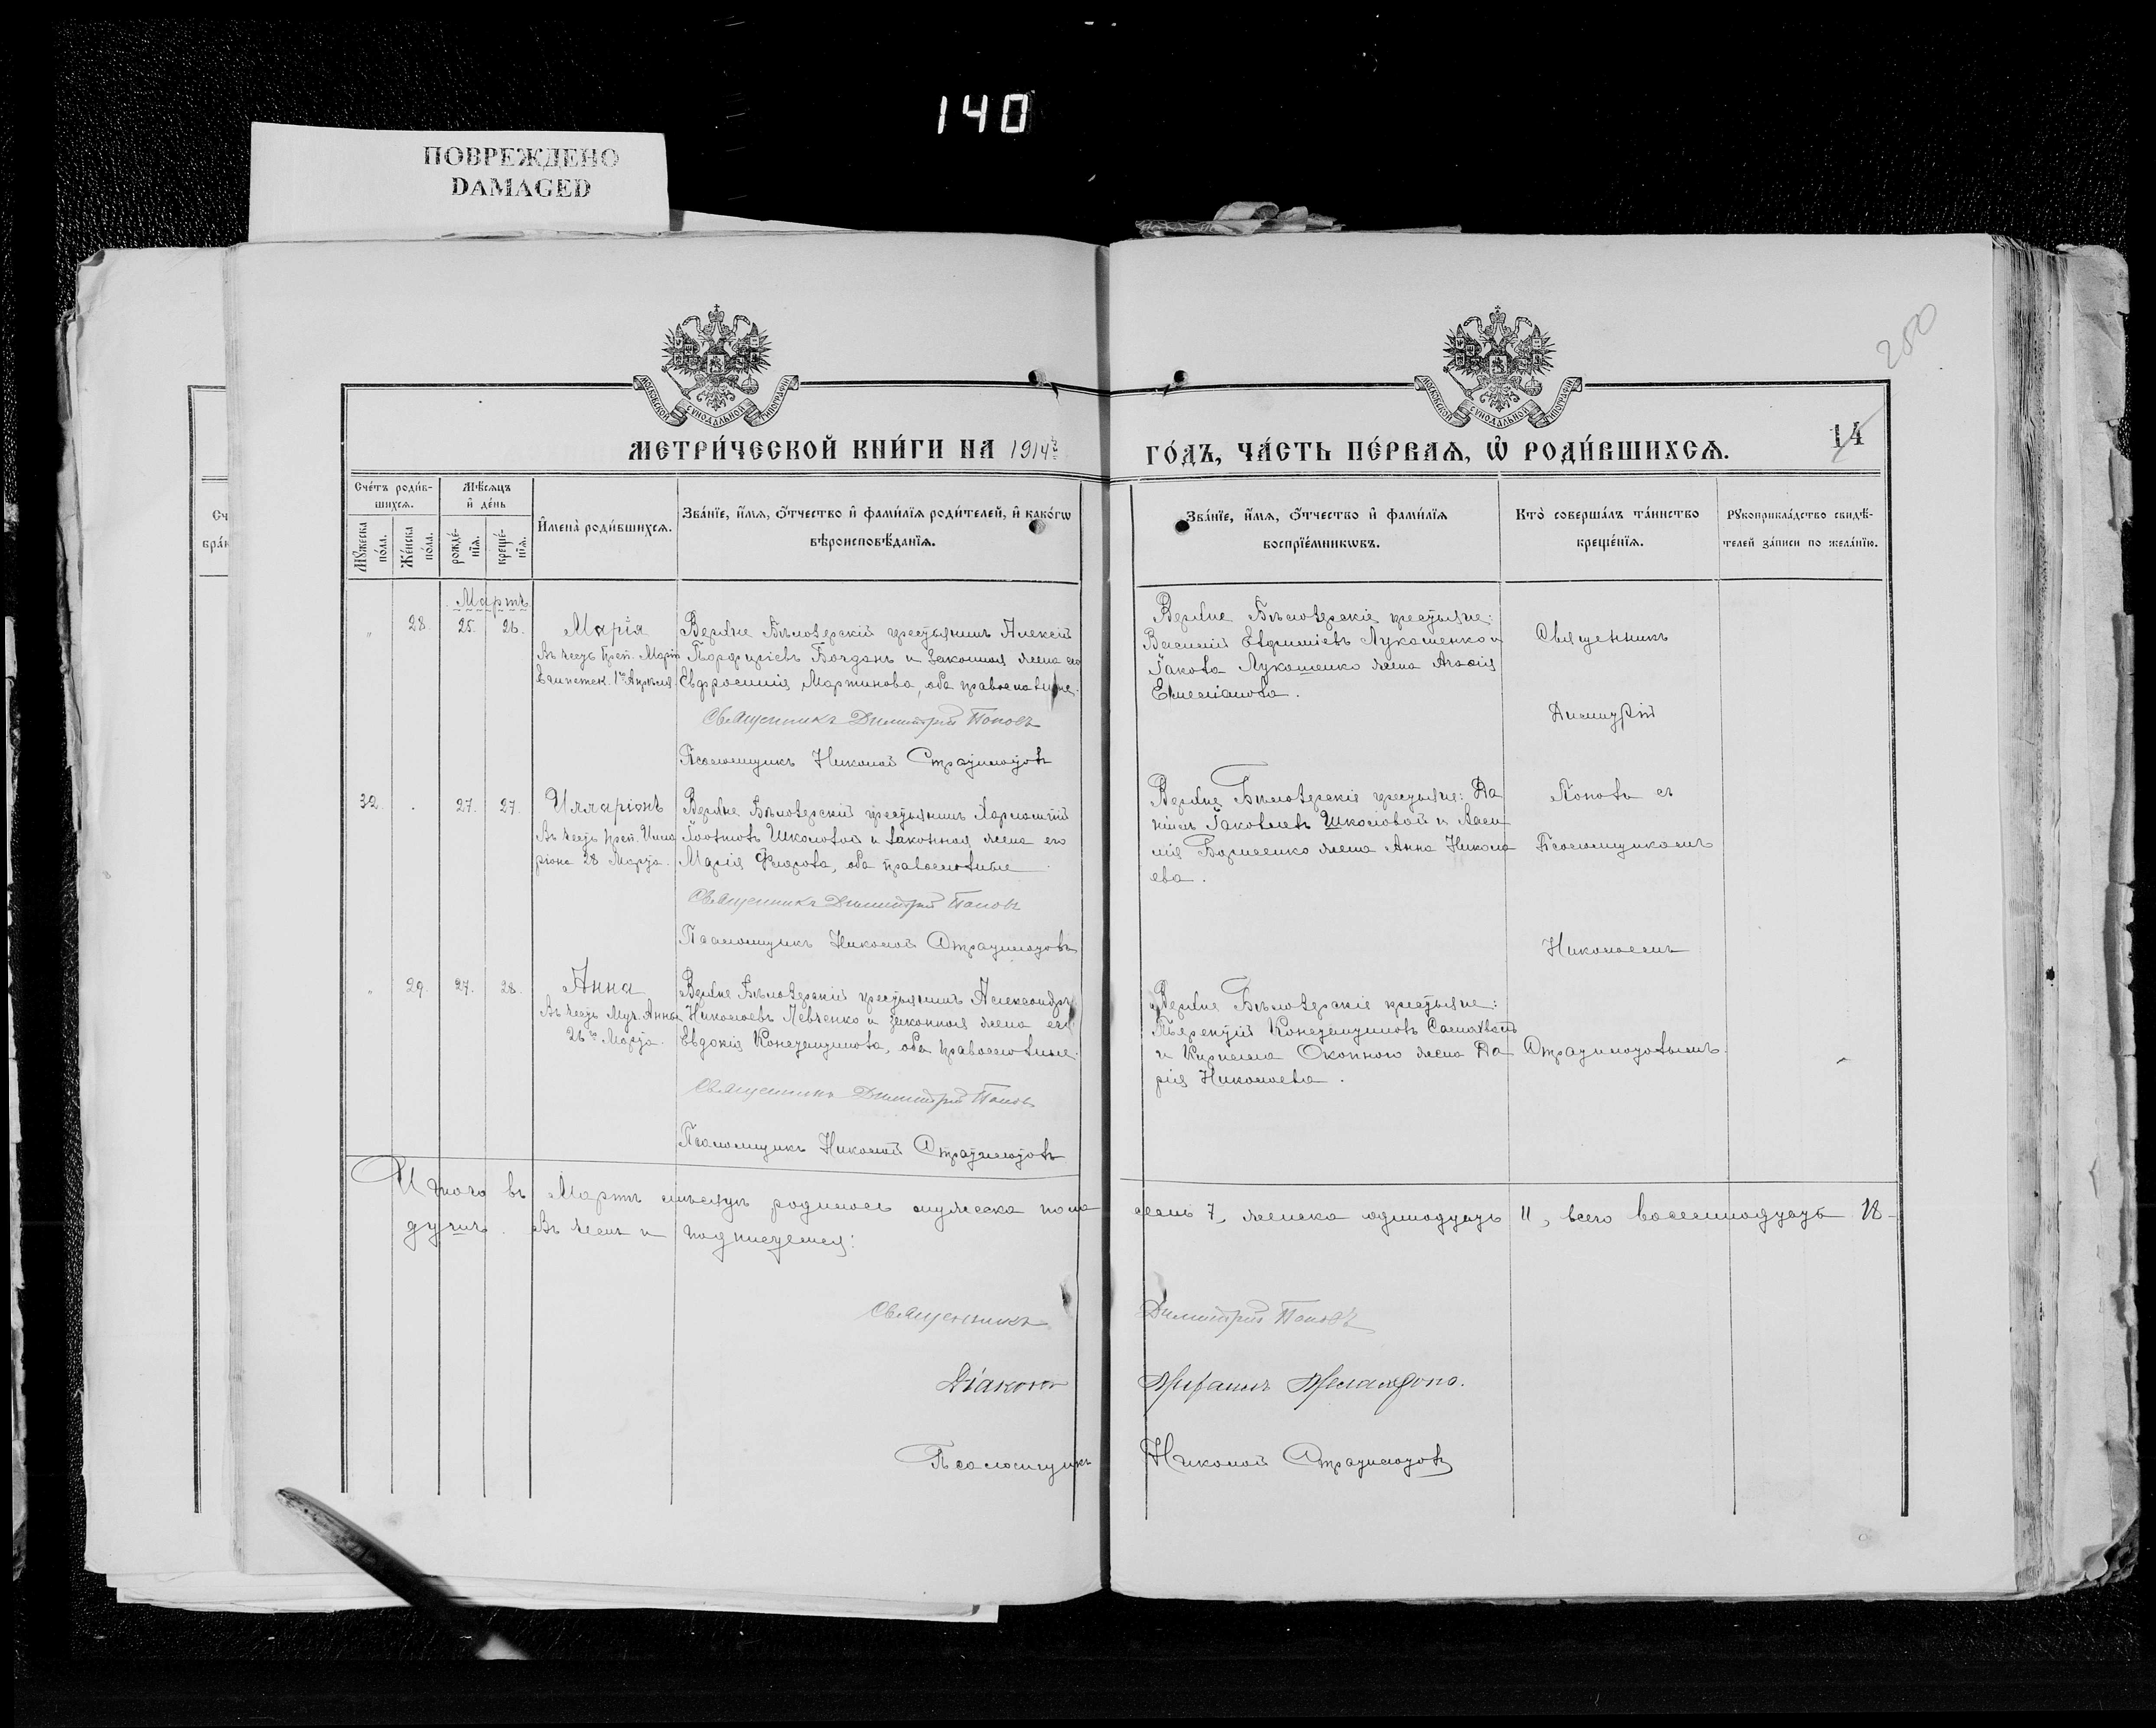 140
ПОВРЕЖДЕНО
DAMAGED
250
МОСКОВСКОЙ СУНОДАЛЬНОЙ ТИПОГРАФІИ
МОСКОВСКОЙ СУНОДАЛЬНОЙ ТИПОГРАФІИ
МЕТРИ́ЧЕСКОЙ КНИ́ГИ НА 1914 й
ГО́ДЪ, ЧА́СТЬ ПЕ́РВАѦ, Ѡ҆ РОДИ́ВШИХСѦ.
14
Сче́тъ роди́в-
шихсѧ.
Мꙋ́жеска по́ла.
Же́нска по́ла.
Мѣ́сѧцъ
и҆ де́нь
рожде́-
нїѧ.
креще́-
нїѧ.
И҆мена̀ роди́вшихсѧ.
Зва́нїе, и҆́мѧ, ѻ҆́тчество и҆ фами́лїѧ роди́телей, и҆ како́гѡ
вѣроисповѣ́данїѧ.
Зва́нїе, и҆́мѧ, ѻ҆́тчество и҆ фами́лїѧ
воспрїе́мникѡвъ.
Кто̀ соверша́лъ та́инство
креще́нїѧ.
Рꙋкоприкла́дство свидѣ́-
телей за́писи по жела́нїю.
Мартъ
28. 25. 26. Марія
Въ честь Преп. Маріи
Египетск. 1го Апрѣля.
Верхне Бѣлозерскій крестьянинъ Алексѣй
Порфиріевъ Богданъ и законная жена его
Евфросинія Мартинова, оба православные.
Священникъ Димитрій Поповъ
Псаломщикъ Николай
Верхне Бѣлозерскіе крестьяне:
Василій Евфиміевъ Лукашенко и
Іакова Лукашенко жена Агафія
Емеліанова.
Священникъ
Димитрій
32. 27. 27. Илларіонъ
Въ честь Преп. Илла
ріона 28 Марта.
Верхне Бѣлозерскій крестьянинъ Харлампій
Іоанновъ Школовой и законная жена его
Марія Флорова, оба православные
Священникъ Димитрій Поповъ
Псаломщикъ Николай
Верхне Бѣлозерскіе крестьяне: Да
ніилъ Іаковлевъ Школовой и
Борисенко жена Анна Никола
ева.
Поповъ съ
Псаломщикомъ
Николаемъ
29. 27. 28. Анна
Въ честь Муч. Анны
26го Марта.
Верхне Бѣлозерскій крестьянинъ Александръ
Николаевъ Левченко и законная жена его
Евдокія Константинова, оба православные.
Священникъ Димитрій Поповъ
Псаломщикъ Николай
Верхне Бѣлозерскіе крестьяне:
Терентій Константиновъ
и Кирилла Окопного жена Да
рія Николаева.
Итого въ Мартѣ мѣсяцѣ родилось мужеска пола
семь 7, женска одинадцать 11, всего восемнадцать 18
душъ. Въ чемъ и подписуемся:
Священникъ Димитрій Поповъ
Діаконъ
Псаломщикъ Николай